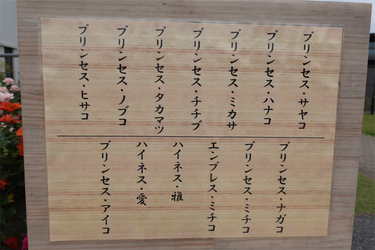 プリンセス・サヤコ
プリンセス・ハナコ
プリンセス・ミカサ
プリンセス・チチブ
プリンセス・タカマツ
プリンセス・ノブコ
プリンセス・ヒサコ
プリンセス・ナガコ
プリンセス・ミチコ
エンプレス・ミチコ
ハイネス・雅
ハイネス・愛
プリンセス・アイコ